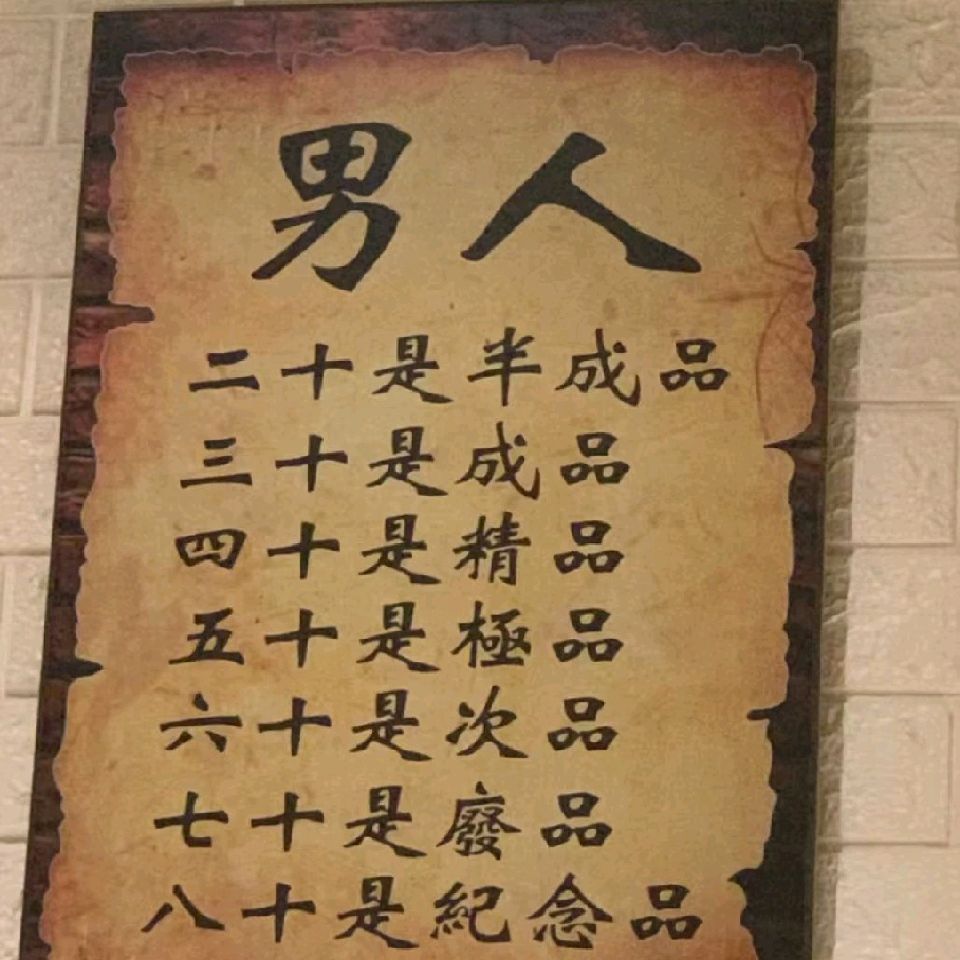 男人
二十是半成品
三十是成品
四十是精品
五十是極品
六十是次品
七十是廢品
八十是紀念品